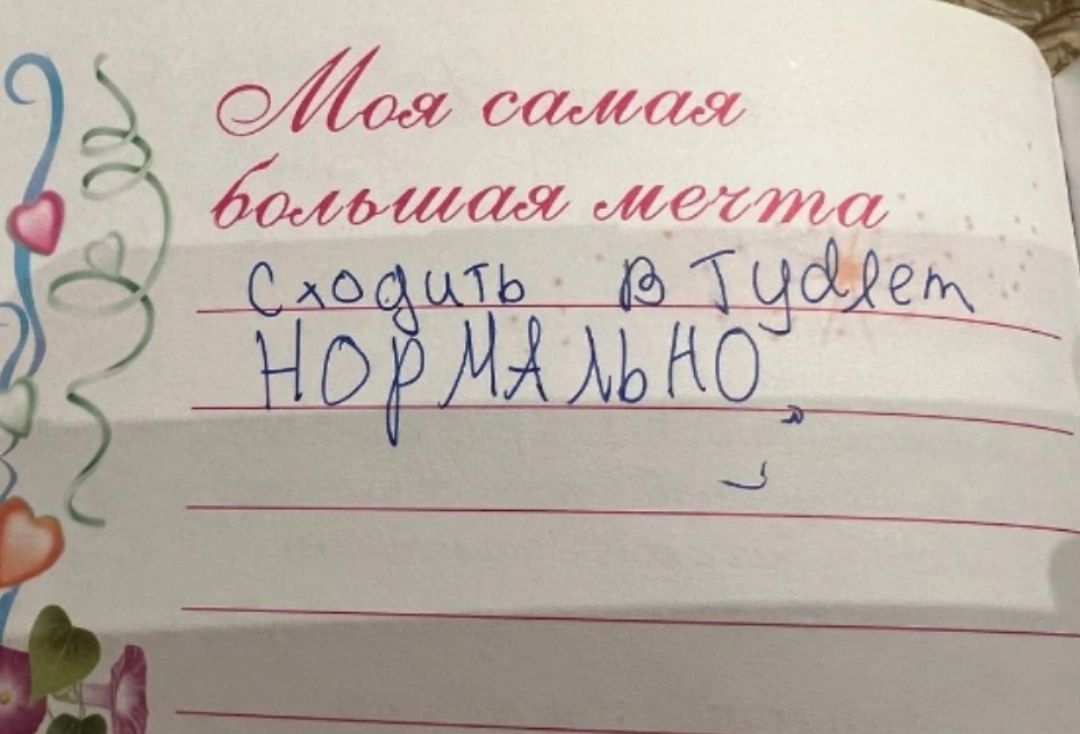 Моя самая
большая мечта
Сходить в Туалет
НОРМАЛЬНО